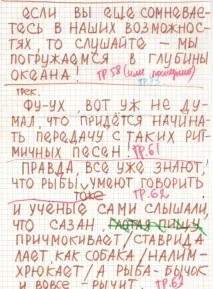 ЕСЛИ ВЫ ЕЩЕ СОМНЕВАЕ-
ТЕСЬ В НАШИХ ВОЗМОЖНОС-
ТЯХ, ТО СЛУШАЙТЕ – МЫ
ПОГРУЖАЕМСЯ В ГЛУБИНЫ
ОКЕАНА! ТР.58
ТРЕК.
ФУ-УХ, ВОТ УЖ НЕ ДУ-
МАЛ, ЧТО ПРИДЁТСЯ НАЧИНА-
ТЬ ПЕРЕДАЧУ С ТАКИХ РИТ-
МИЧНЫХ ПЕСЕН! ТР.61
ПРАВДА, ВСЕ УЖЕ ЗНАЮТ,
ЧТО РЫБЫ УМЕЮТ ГОВОРИТЬ
ТОЖЕ ТР.62
И УЧЕНЫЕ САМИ СЛЫШАЛИ,
ЧТО САЗАН
ПРИЧМОКИВАЕТ/СТАВРИДА
ЛАЕТ, КАК СОБАКА/НАЛИМ-
ХРЮКАЕТ/А РЫБА-БЫЧОК
И ВОВСЕ – РЫЧИТ. ТР.63